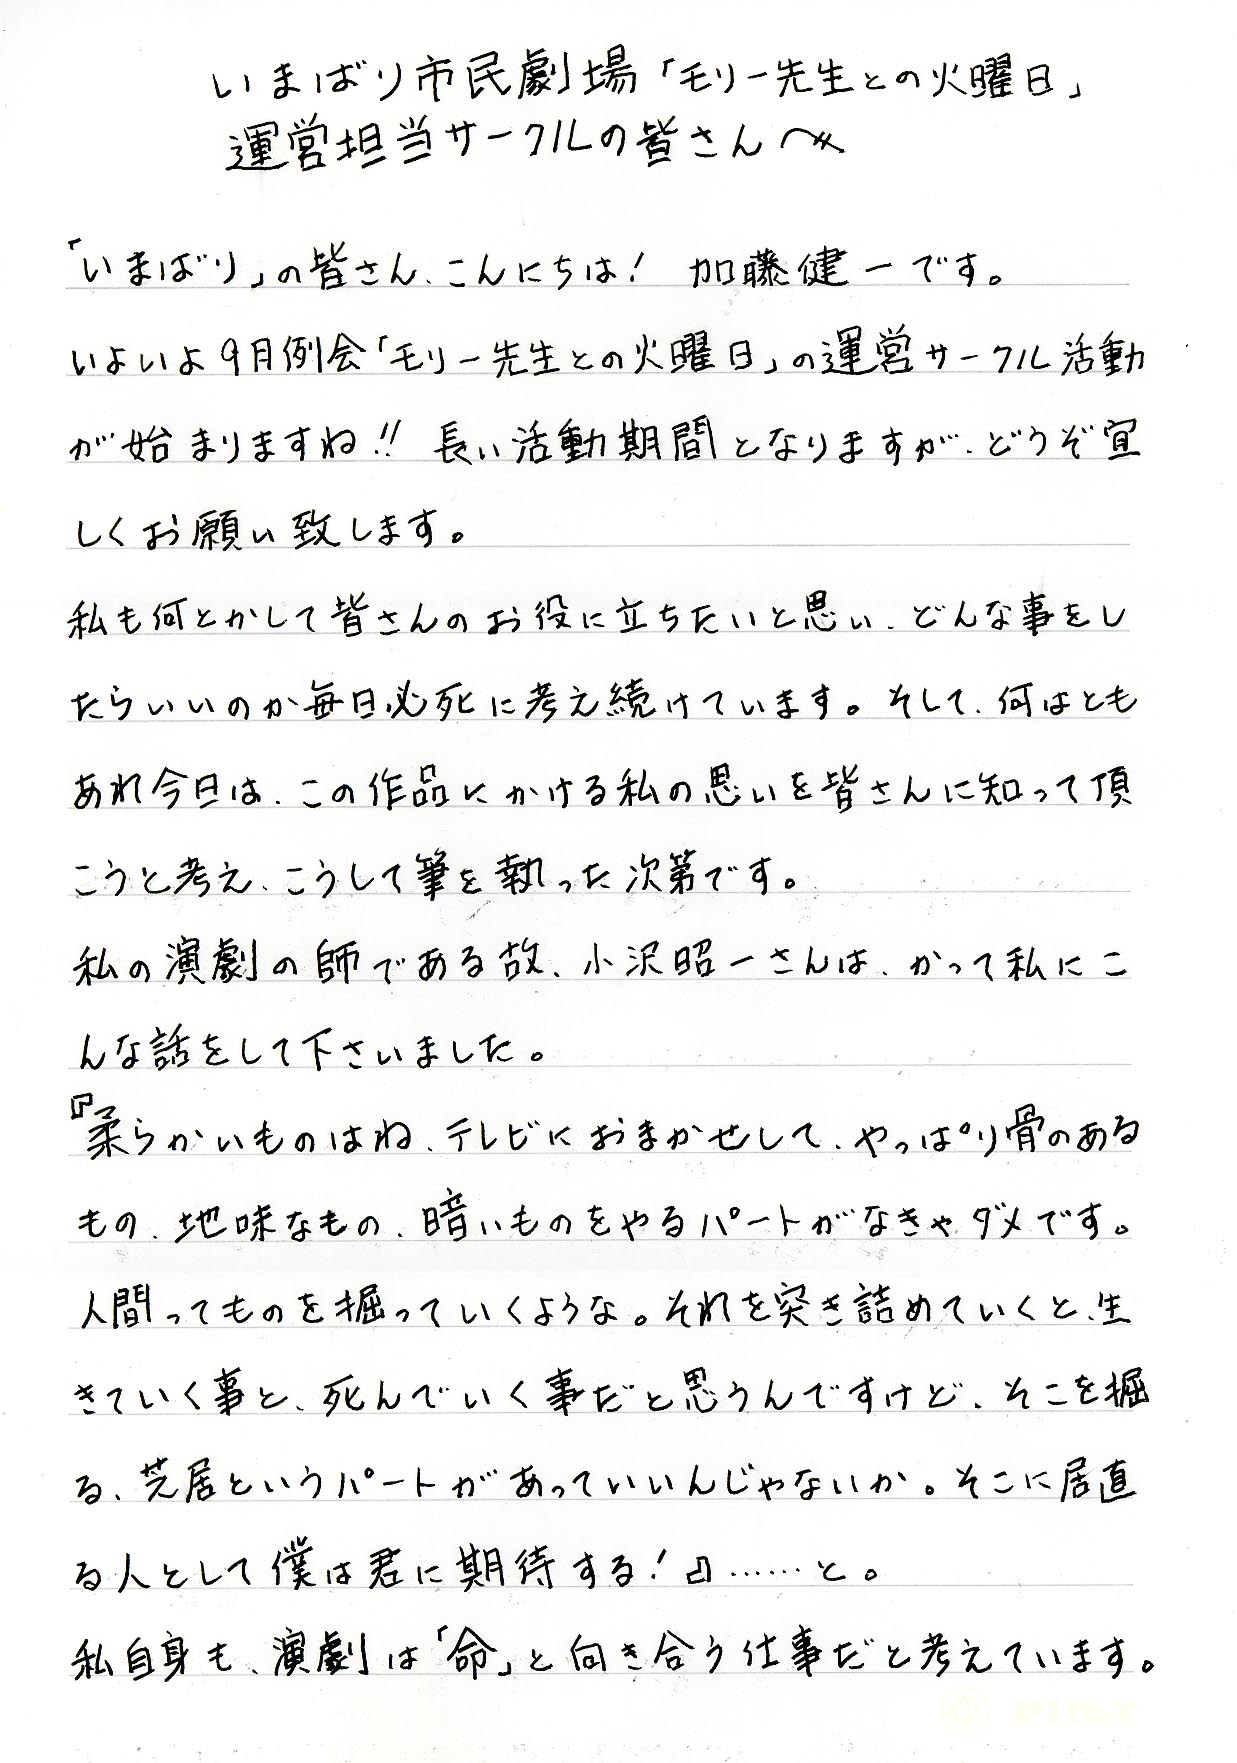 いまばり市民劇場「モリー先生との火曜日」
運営担当サークルの皆さんへ
「いまばり」の皆さん、こんにちは! 加藤健一です。
いよいよ9月例会「モリー先生との火曜日」の運営サークル活動
が始まりますね!! 長い活動期間となりますが、どうぞ宜
しくお願い致します。
私も何とかして皆さんのお役に立ちたいと思い、どんな事をし
たらいいのか毎日必死に考え続けています。そして、何はとも
あれ今日は、この作品にかける私の思いを皆さんに知って頂
こうと考え、こうして筆を執った次第です。
私の演劇の師である故、小沢昭一さんは、かって私にこ
んな話をして下さいました。
『柔らかいものはね、テレビにおまかせして、やっぱり骨のある
もの、地味なもの、暗いものをやるパートがなきゃダメです。
人間ってものを掘っていくような。それを突き詰めていくと、生
きていく事と、死んでいく事だと思うんですけど、そこを掘
る、芝居というパートがあっていいんじゃないか。そこに居直
る人として僕は君に期待する!』……と。
私自身も、演劇は「命」と向き合う仕事だと考えています。